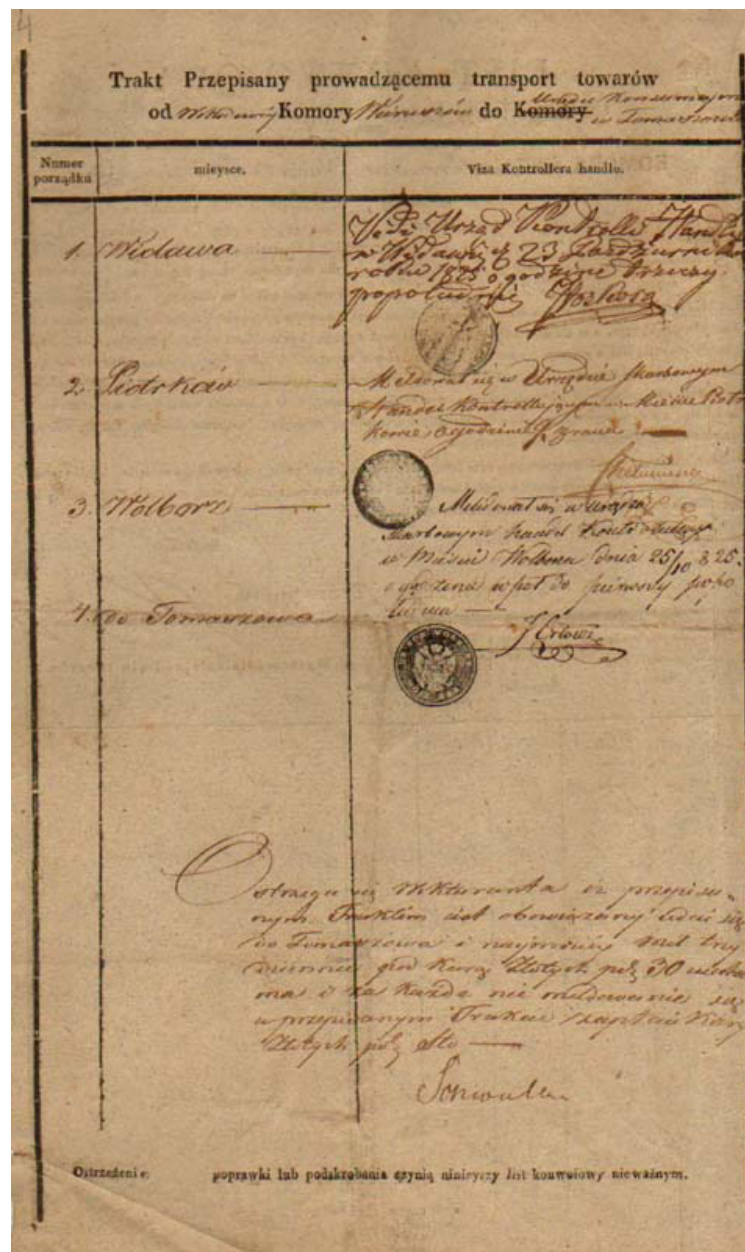 4
Trakt Przepisany prowadzącemu transport towarów
od Komory Wieruszów do Komory Urzędu Konsumcyjnego
w Tomaszowie
Numer porządku
mieysce.
Viza Kontrollera handlu.
1. Widawa
Vidi Urząd Kontrolli Handlu
w Widawie d. 23 Października
roku 1825 o godzinie trzeciey
popołudniu
2. Piotrków
Meldował się w Urzędzie Skarbowym
Handel Kontrollującym w Mieście Piotr
kowie o godzinie zrana
3. Wolborz
Meldował się w Urzędzie
Skarbowym handel Kontrolującym
w Mieście Wolborzu dnia 25/10 825.
o godzinie w pół do pierwszy popo
łudniu
4. do Tomaszowa
Ostrzega się Wekturanta iż przepisa-
nym Traktem jest obowiązany udać się
do Tomaszowa i naymniey mil trzy
dziennie pod karą Złotych pol. 30
i za każde nie meldowanie się
w przepisanym Trakcie zapłaci karę
Złotych pol. Sto
Ostrzeżenie: poprawki lub podskrobania czynią ninieyszy list konwoiowy nieważnym.